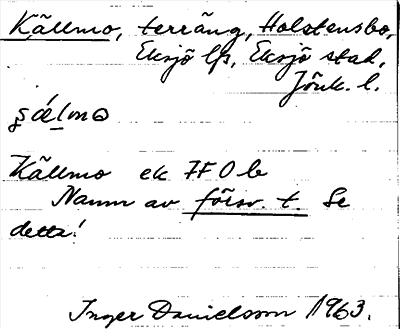 Källmo, terräng, Holstensbo,
Eksjö lfs, Eksjö stad,
Jönk. l.
Källmo ek 7F 0 b
Namn av försv. t. Se
detta!
Inger Danielsson 1963.